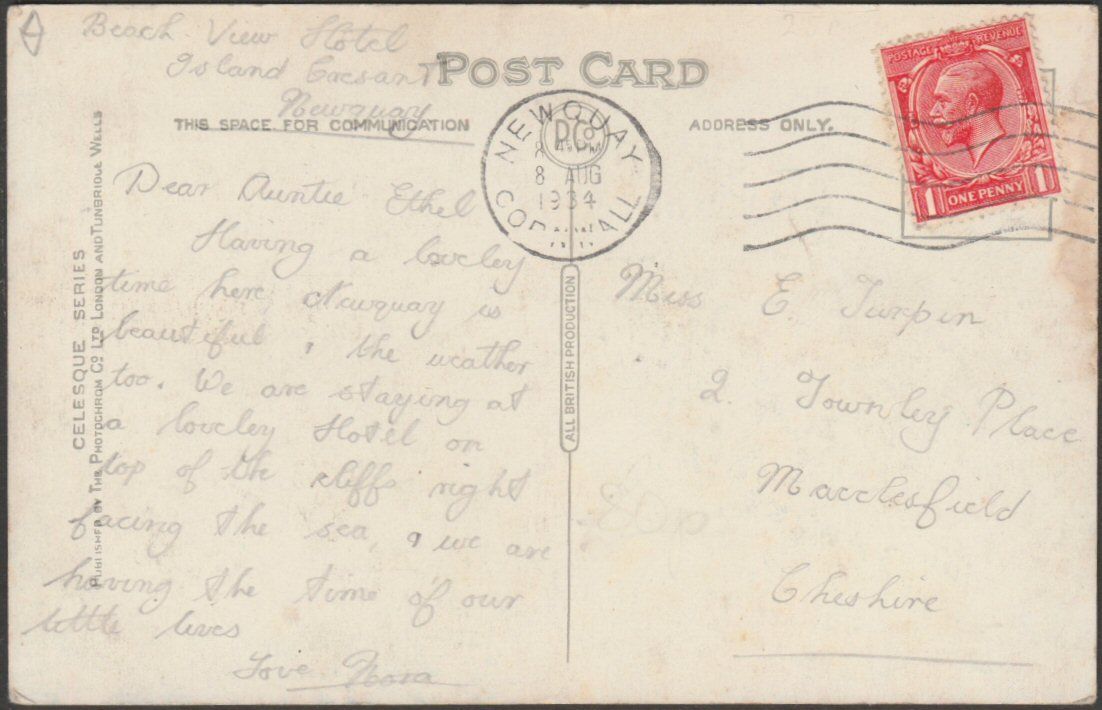 Beach View Hotel
Island Cresant
Newquay
POST CARD
THIS SPACE FOR COMMUNICATION
ADDRESS ONLY.
NEWQUAY
CORNWALL
8 AUG
1934
POSTAGE REVENUE
1 ONE PENNY 1
Dear Auntie Ethel
Having a loveley
time here, Newquay is
beautiful, the weather
too. We are staying at
a loveley Hotel on
top of the cliffs right
facing the sea, we are
having the time of our
little lives
Love Nora
Miss E. Turpin
2. Townley Place
Macclesfield
Cheshire
CELESQUE SERIES
PUBLISHED BY THE PHOTOCHROM CO. LTD LONDON AND TUNBRIDGE WELLS
ALL BRITISH PRODUCTION